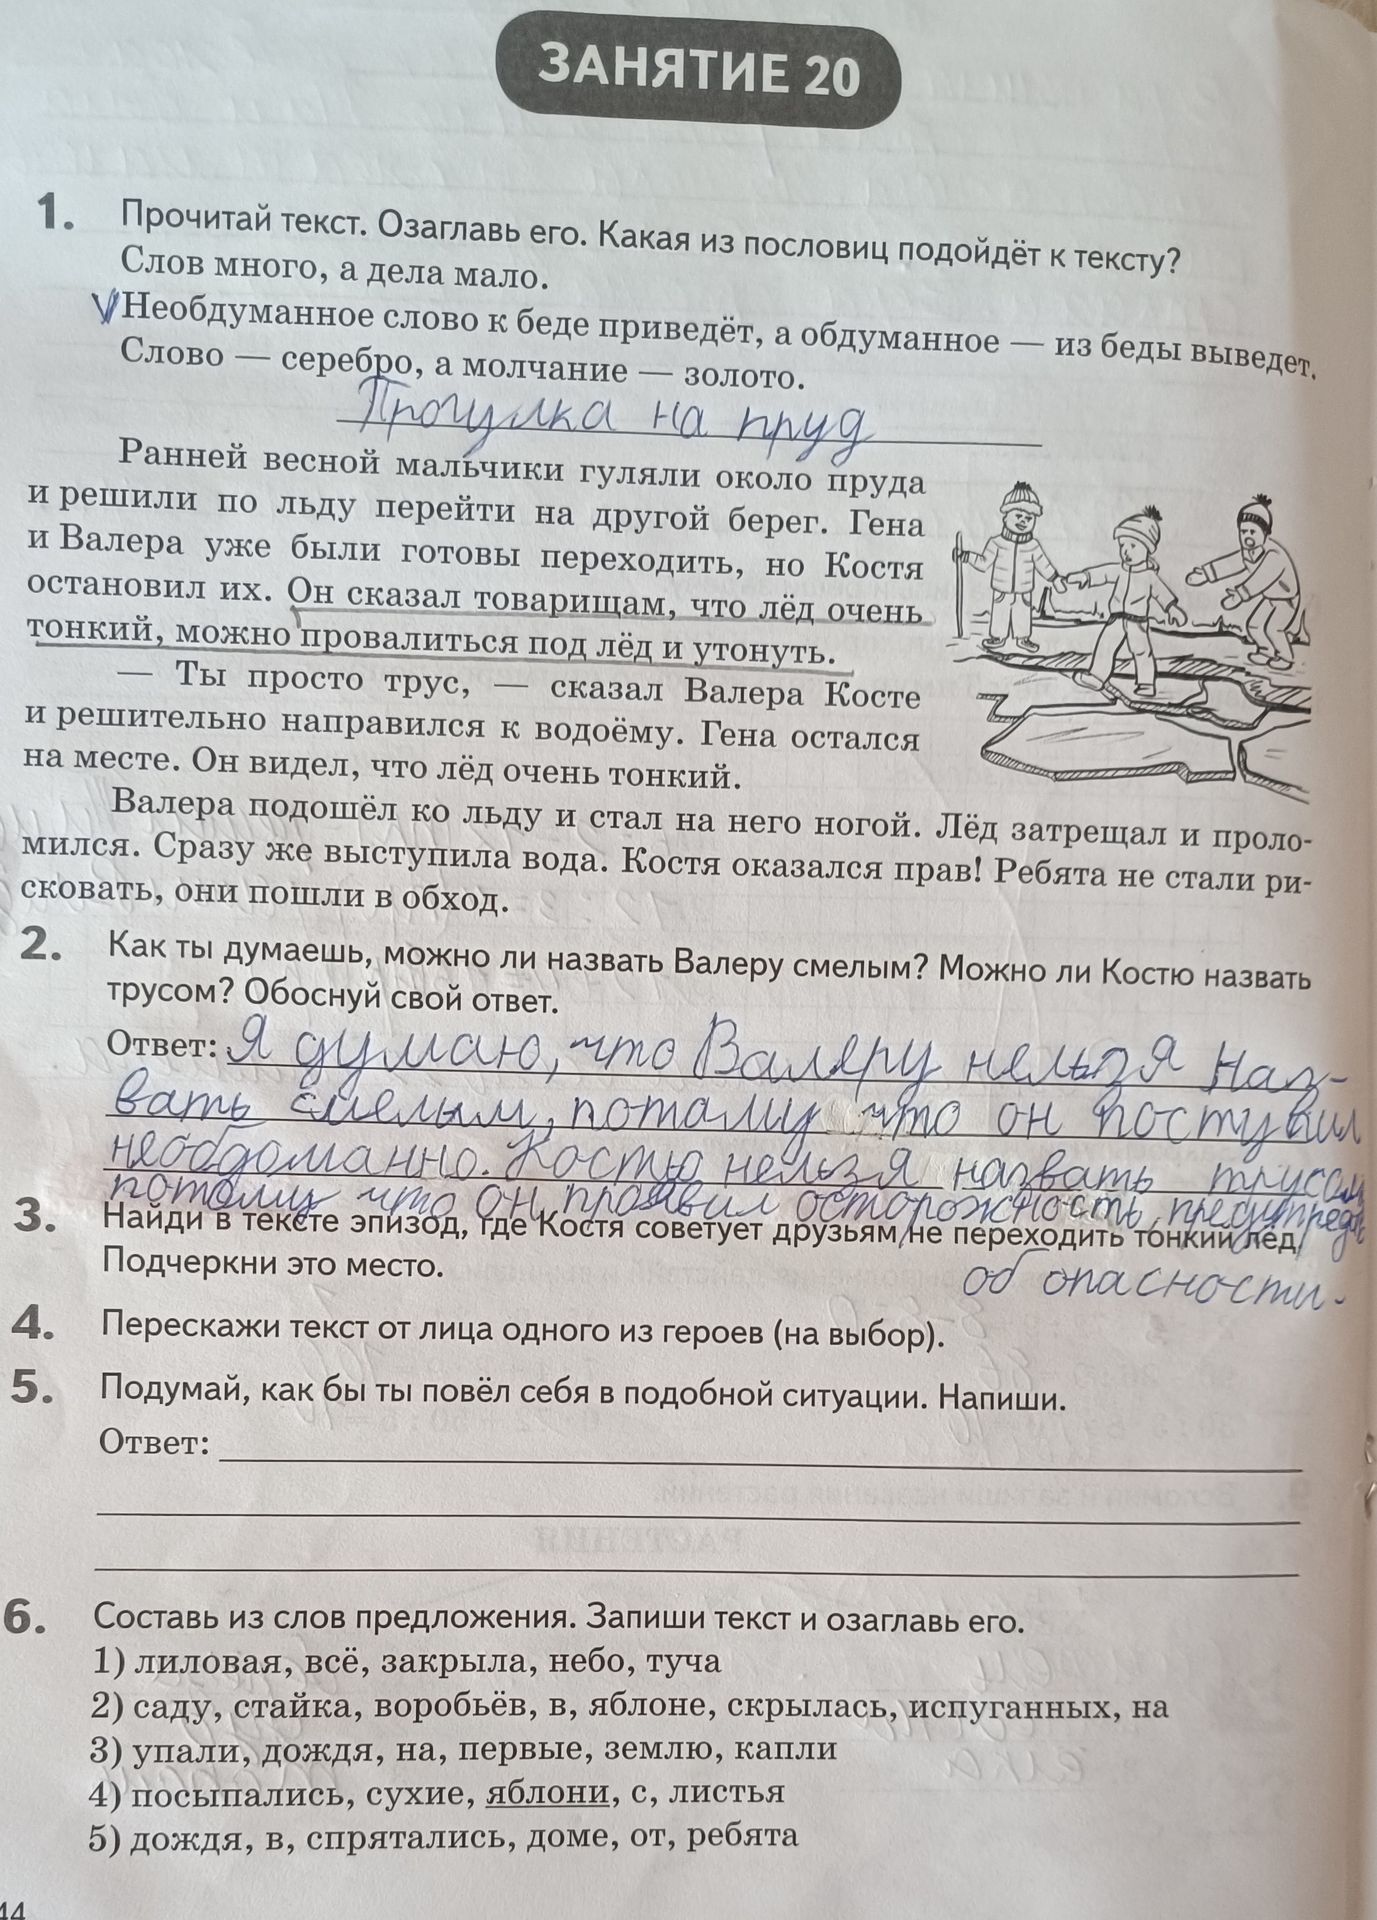 ЗАНЯТИЕ 20
1. Прочитай текст. Озаглавь его. Какая из пословиц подойдёт к тексту?
Слов много, а дела мало.
V Необдуманное слово к беде приведёт, а обдуманное — из беды выведет.
Слово — серебро, а молчание — золото.
Прогулка на пруд
Ранней весной мальчики гуляли около пруда
и решили по льду перейти на другой берег. Гена
и Валера уже были готовы переходить, но Костя
остановил их. Он сказал товарищам, что лёд очень
тонкий, можно провалиться под лёд и утонуть.
— Ты просто трус, — сказал Валера Косте
и решительно направился к водоёму. Гена остался
на месте. Он видел, что лёд очень тонкий.
Валера подошёл ко льду и стал на него ногой. Лёд затрещал и проло-
мился. Сразу же выступила вода. Костя оказался прав! Ребята не стали ри-
сковать, они пошли в обход.
2. Как ты думаешь, можно ли назвать Валеру смелым? Можно ли Костю назвать
трусом? Обоснуй свой ответ.
Ответ: Я думаю, что Валеру нельзя наз-
вать смелым, потому что он поступил
необдоманно. Костю нельзя назвать трусом
потому что он проявил осторожность, предупредил
3. Найди в тексте эпизод, где Костя советует друзьям не переходить тонкий лёд.
Подчеркни это место.
об опасности.
4. Перескажи текст от лица одного из героев (на выбор).
5. Подумай, как бы ты повёл себя в подобной ситуации. Напиши.
Ответ:
6. Составь из слов предложения. Запиши текст и озаглавь его.
1) лиловая, всё, закрыла, небо, туча
2) саду, стайка, воробьёв, в, яблоне, скрылась, испуганных, на
3) упали, дождя, на, первые, землю, капли
4) посыпались, сухие, яблони, с, листья
5) дождя, в, спрятались, доме, от, ребята
44